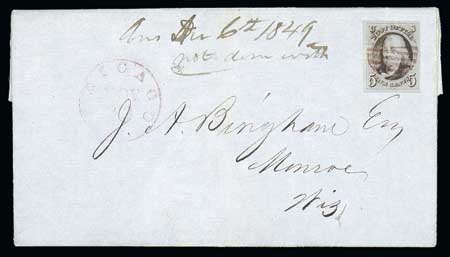 Ans Dec 6th 1849
not done with
CHICAGO
POST OFFICE
5 5
FIVE CENTS
J. A. Bingham Esq
Monroe
Wis.